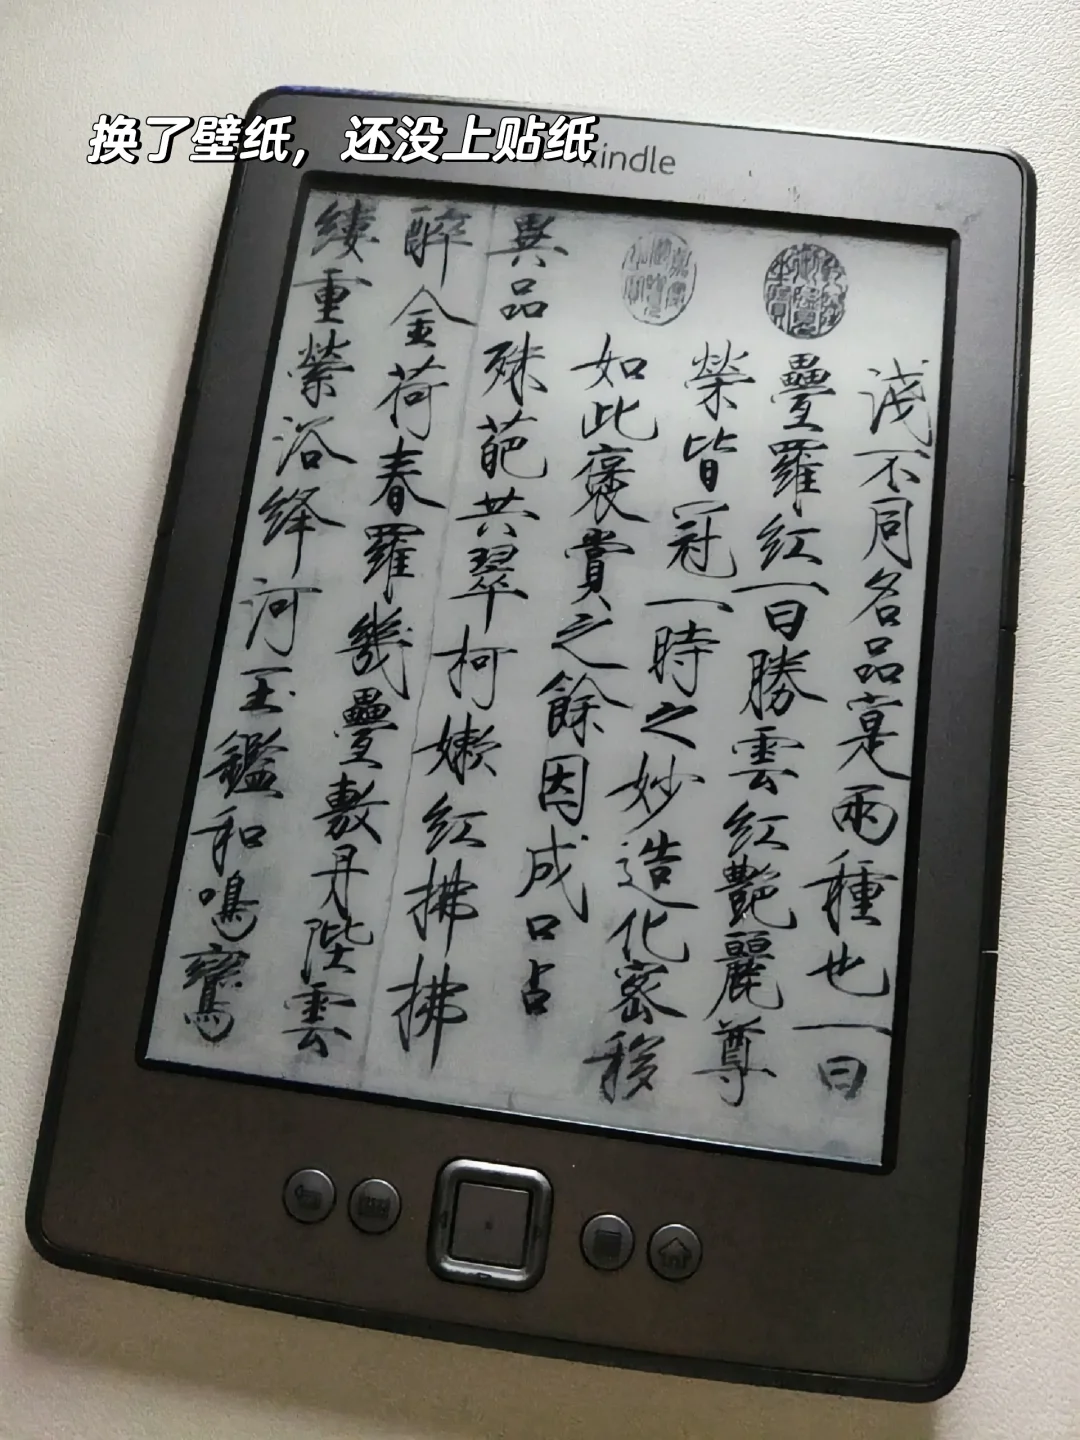 换了壁纸，还没上贴纸
kindle
淺不同名品寔兩種也一曰
疊羅紅一曰勝雲紅艷麗尊
榮皆冠一時之妙造化密移
如此褒賞之餘因成口占
異品殊葩共翠柯嫩紅拂拂
醉金荷春羅幾疊敷丹陛雲
縷重縈浴絳河玉鑑和鳴鸞